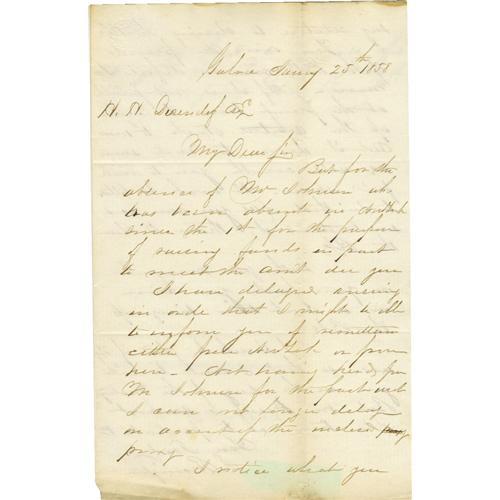 Jany 25th 1858
H. H.
My Dear Sir
But for the
absence of Mr Johnson who
has been absent in
since the 1st for the purpose
of raising funds in part
to meet the amt due you
I have delayed
in order that I might be able
to inform you of remittance
either from or from
here - Not having heard from
Mr Johnson for the past week
I can no longer delay
on account of the
I notice what you